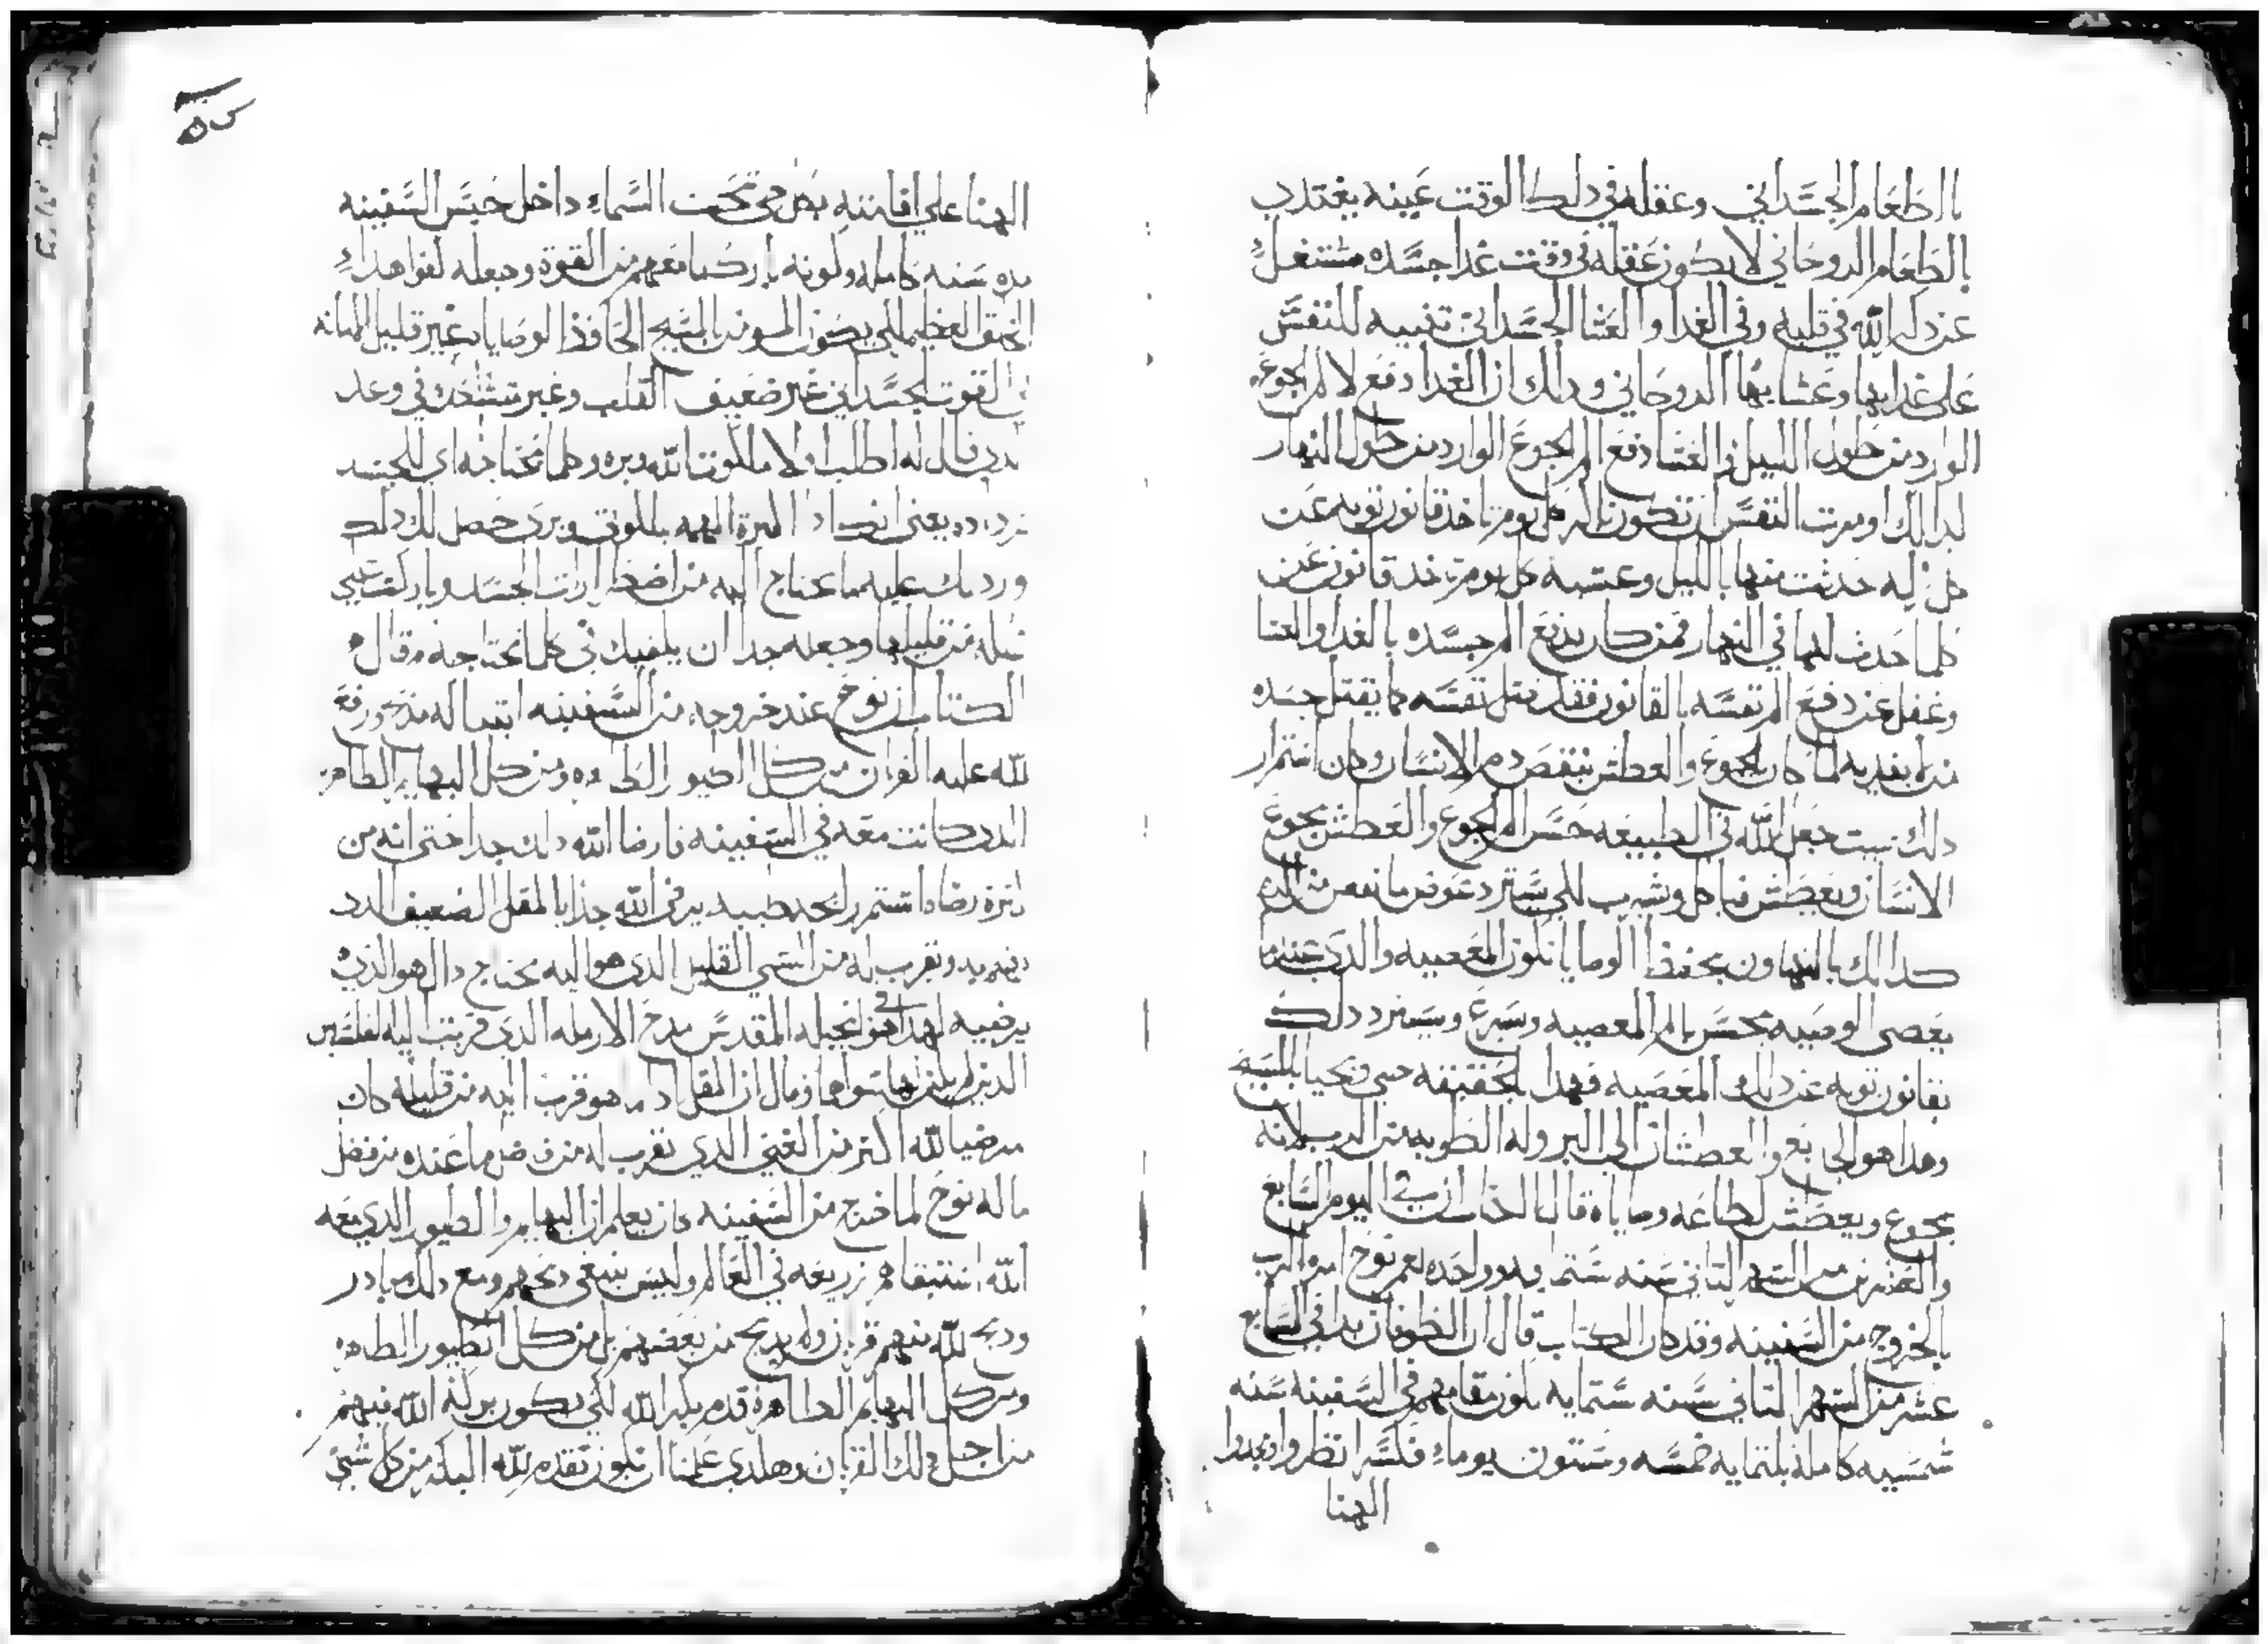 بالطعام الجسداني وعقله في دلك الوقت عينه يغتدي
بالطعام الروحاني لا يكون عقله في وقت غدا جسده مشتغل
عن ذكر الله في قلبه وفي الغدا والعشا الجسداني تنبيه للنفس
على غدايها وعشايها الروحاني ودلك ان الغدا دفع لالم الجوع
الوارد من طول الليل والعشا دفع الم الجوع الوارد من طول النهار
لدالك اومرت النفس ان تكون كل يوم تاخذ قانون توبه عن
كل حدثت منها بالليل وعشية كل يوم تاخد قانون عن
كلما حدث لها في النهار فمن كان يدفع الم جسده بالغدا والعشا
وغفل عن دفع الم نفسه بالقانون فقد قتل نفسه كما يقتل جسده
بغديه لما كان الجوع والعطش ينقص دم الانسان وكان استمرار
دلك جعل الله في الطبيعه حس الم الجوع والعطش يجوع
الانسان ويعطش فياكل ويشرب لكي يسترد عوض ما نقص من الدم
كدالك بالتهاون بحفظ الوصايا تكون المعصيه والدي عندما
يعصى الوصيه يحس بالم المعصيه ويسرع ويسترد دلك
بقانون توبه عن دلك المعصيه فهدا بالحقيقه حي ويحيا بالمسيح
وهدا هو الجايع والعطشان الى البر وله الطوبه من الرب لانه
يجوع ويعطش لطاعه وصاياه قال الكتاب ان في اليوم السابع
والعشرين من الشهر التاني سنه ستمايه وواحده لعمر نوح امره الرب
بالخروج من السفينه وقد كان الكتاب قال ان الطوفان بدا في السابع
عشر من الشهر التاني سنه ستمايه يكون مقامهم في السفينه سنه
شمسيه كامله تلتمايه خمسه وستون يوما فلسر انظروا
الهنا
الهنا على اقامته تحت السماء داخل حبس السفينه
مده سنه كامله وكونه بارك ما معهم من القوة وجعله
العظيم لكي يكون المومن بالمسيح الحافظ الوصايا غير قليل الامانه
في القوت الجسداني غير ضعيف القلب وغير متشكك في وعد
قال له اطلب اولا ملكوت الله وبره وكلما تحتاجه اي للجسد
تزداده يعني ان كان بالملكوت وبري حصل لك دلك
وزدتك عليه ما تحتاج اليه من اضطرارات الجسد وباركت على
من قليلها وجعله جدا ان يكفيك في كلما تحتاجه وقال
الكتاب ان نوح عند خروجه من السفينه ابتنا له مدبح ورفع
لله عليه القربان من كل الطيور الطاهره ومن كل البهايم الطاهره
الدي كانت معه في السفينه فارضا الله دلك جدا حتى انه من
كترة رضاه اشتم رايحه طيبه يرضى الله جدا بالمقل الضعيف الدي
يهتم به ويقرب له من الشي القليل الدي هو اليه محتاج دال هو الذي
يرضيه لهدا هو في انجيله المقدس مدح الارمله الدي قربت اليه الفلسين
الدين لم يكن لها سواهما وقال ان المقل ادا ما هو قرب اليه من قليله كان
مرضيا لله اكتر من الغني الدي يقرب له من فضل ما عنده من فضل
ماله نوح لما خرج من السفينه كان يعلم ان البهايم والطيور الدي معه
الله استبقاهم زريعه في العالم وليس ينبغي دبحهم ومع دلك بادر
ودبح لله منهم قربان ولم يدبح من بعضهم بل من كل الطيور الطاهره
ومن كل البهايم الطاهرة قدم بكر الله لكي تكون بركة الله فيهم
من اجل دلك القربان وهكدي علمنا ان نكون نقدم لله البكر من كل شي